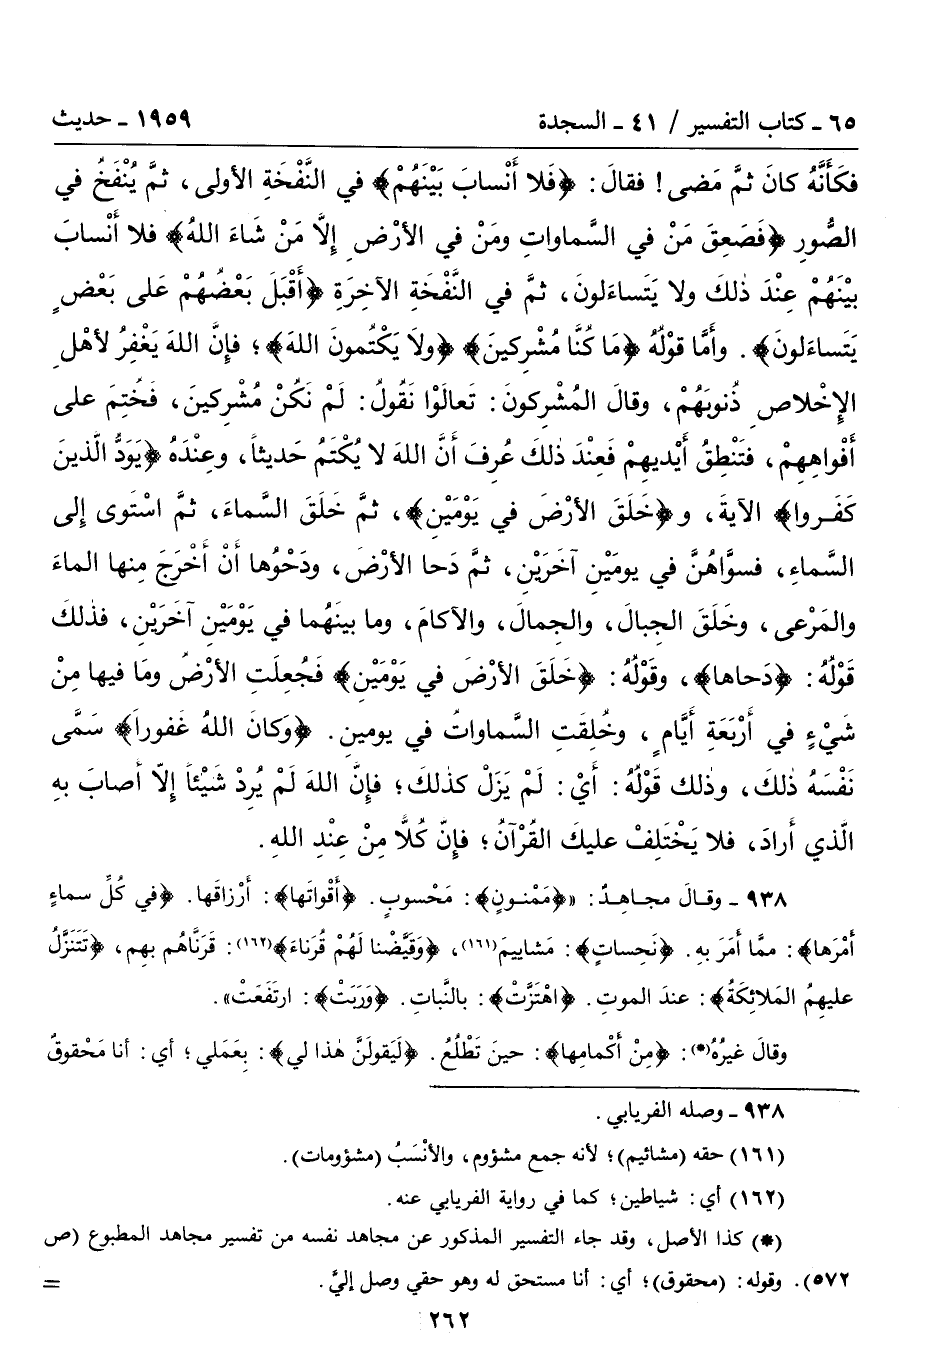 ٦٥ ـ كتاب التفسير / ٤١ ـ السجدة ١٩٥٩ ـ حديث
فكَأَنَّهُ كانَ ثمَّ مَضى! فقالَ: ﴿فَلا أَنْسابَ بَيْنَهُمْ﴾ في النَّفْخَةِ الأولى، ثمَّ يُنْفَخُ في
الصُّورِ ﴿فَصَعِقَ مَنْ في السَّماواتِ ومَنْ في الأرْضِ إلَّا مَنْ شَاءَ اللهُ﴾ فلا أَنْسابَ
بيْنَهُمْ عِنْدَ ذٰلكَ ولا يَتَساءَلونَ، ثمَّ في النَّفْخَةِ الآخِرَةِ ﴿أَقْبَلَ بَعْضُهُمْ عَلى بَعْضٍ
يَتَساءَلونَ﴾. وأَمَّا قوْلُهُ ﴿مَا كُنَّا مُشْرِكينَ﴾ ﴿ولَا يَكْتُمونَ اللهَ﴾؛ فإنَّ اللهَ يَغْفِرُ لأهْلِ
الإِخْلاصِ ذُنوبَهُمْ، وقالَ المُشْرِكونَ: تَعالَوْا نَقُولُ: لَمْ نَكُنْ مُشْرِكينَ، فَخُتِمَ على
أَفْواهِهِمْ، فتَنْطِقُ أَيْديهِمْ فَعِنْدَ ذلكَ عُرِفَ أَنَّ اللهَ لا يُكْتَمُ حَديثاً، وعِنْدَهُ ﴿يَوَدُّ الَّذينَ
كَفَـروا﴾ الآيةَ، و﴿خَلَقَ الأرْضَ في يَوْمَيْنِ﴾، ثمَّ خَلَقَ السَّماءَ، ثمَّ اسْتَوى إلى
السَّماءِ، فسوَّاهُنَّ في يومَيْنِ آخَرَيْنِ، ثمَّ دَحا الأرْضَ، ودَحْوُها أَنْ أَخْرَجَ مِنها الماءَ
والمَرْعى، وخَلَقَ الجِبالَ، والجِمالَ، والآكامَ، وما بينَهُما في يَوْمَيْنِ آخَرَيْنِ، فذٰلكَ
قَوْلُهُ: ﴿دَحاها﴾، وقَوْلُهُ: ﴿خَلَقَ الأرْضَ في يَوْمَيْنِ﴾ فَجُعِلَتِ الأرْضُ ومَا فيها مِنْ
شَيْءٍ في أَرْبَعَةِ أَيَّامٍ، وخُلِقَتِ السَّماواتُ في يومينِ. ﴿وَكانَ اللهُ غَفوراً﴾ سَمَّى
نَفْسَهُ ذٰلكَ، وذلك قَوْلُهُ: أَيْ: لَمْ يَزَلْ كذلكَ؛ فإنَّ اللهَ لَمْ يُرِدْ شَيْئاً إلَّا أَصابَ بهِ
الَّذي أَرادَ، فلا يَخْتَلِفْ عليكَ القُرْآنُ؛ فإنَّ كُلًّا مِنْ عِنْدِ اللهِ.
٩٣٨ ـ وقـالَ مجـاهِـدٌ: «﴿مَمْنـونٍ﴾: مَحْسوبٍ. ﴿أَقْواتَها﴾: أَرْزاقَها. ﴿في كُلِّ سماءٍ
أَمْرَها﴾: ممَّا أَمَرَ بهِ. ﴿نَحِساتٍ﴾: مَشاييمَ(١٦١)، ﴿وَقَيَّضْنا لَهُمْ قُرَناءَ﴾(١٦٢): قَرَنَّاهُم بهِم، ﴿تَتَنَزَّلُ
عليهِمُ المَلائِكَةُ﴾: عندَ الموتِ. ﴿اهْتَزَّتْ﴾: بالنَّباتِ. ﴿وَرَبَتْ﴾: ارتَفَعَتْ».
وقالَ غيرُهُ(*): ﴿مِنْ أَكْمامِها﴾: حينَ تَطْلُعُ. ﴿لَيَقولَنَّ هٰذا لي﴾: بِعَمَلي؛ أي: أنا مَحْقوقٌ
٩٣٨ ـ وصله الفريابي.
(١٦١) حقه (مشائيم)؛ لأنه جمع مشؤوم، والأنْسَبُ (مشؤومات).
(١٦٢) أي: شياطين؛ كما في رواية الفريابي عنه.
(*) كذا الأصل، وقد جاء التفسير المذكور عن مجاهد نفسه من تفسير مجاهد المطبوع (ص
٥٧٢). وقوله: (محقوق)؛ أي: أنا مستحق له وهو حقي وصل إليَّ. =
٢٦٢